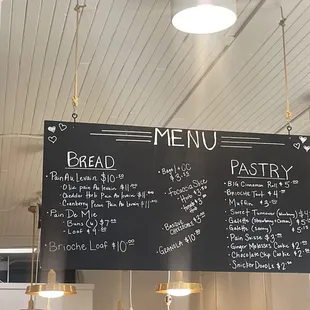 MENU
BREAD
· Pain Au Levain $10.00
Olive pain Au levain $11.00
Cheddar Herb Pain Au Levain $11.00
Cranberry Pecan Pain Au Levain $11.00
· Pain De Mie
Buns (4) $7.00
Loaf $9.00
· Brioche Loaf $10.00
· Bagel + CC
$3.25
· Focaccia Slice
Herb $3
Basque
Cheesecake
· Granola $10.00
PASTRY
· Big Cinnamon Roll $5.00
· Brioche Tart $4.00
· Muffin $3
· Sweet Turnover
· Galette
· Galette (savory) $5
· Pain Suisse $3
· Ginger Molasses Cookie $2.00
· Chocolate Chip Cookie $2.00
· Snicker Doodle $2.00